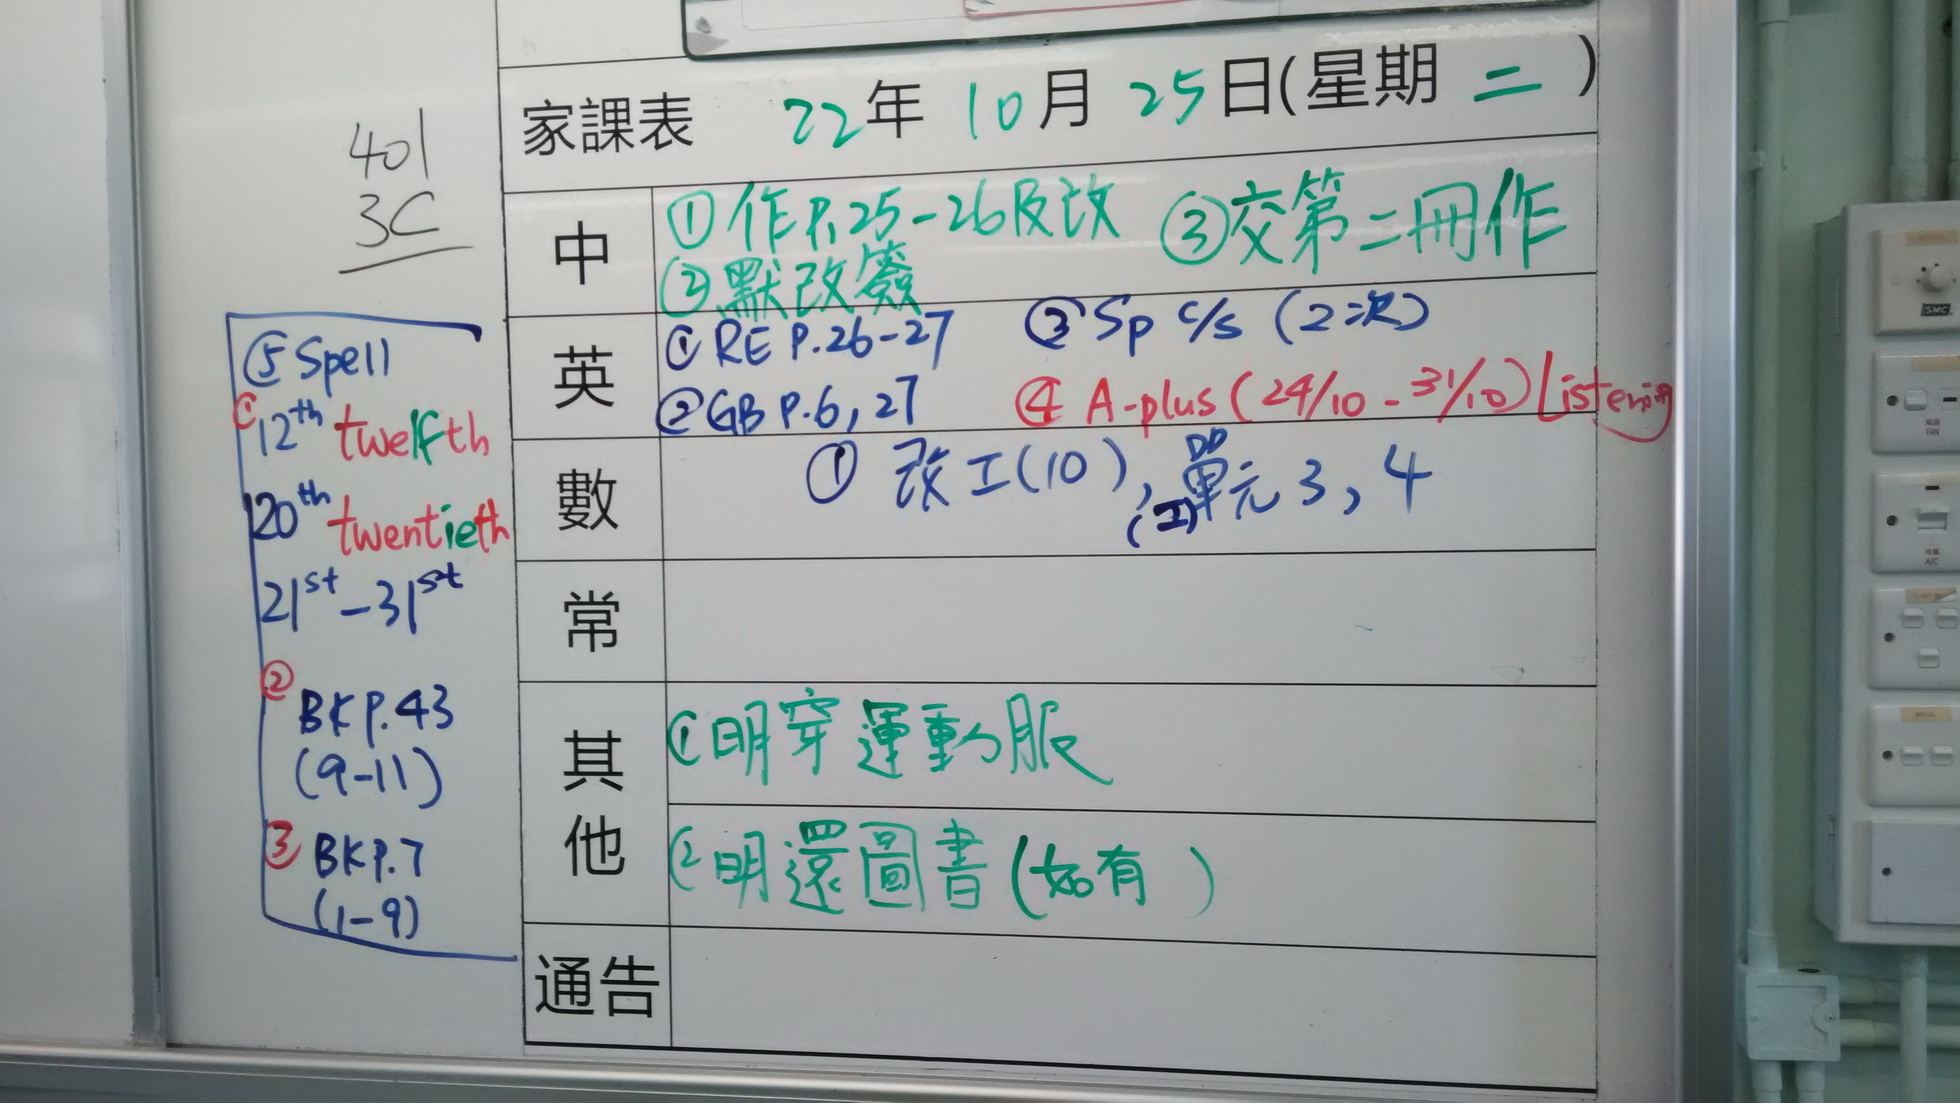 家課表 22年 10月 25日(星期二)
401
3C
中
①作P.25-26及改 ③交第二冊作
②默改簽
英
①RE P.26-27 ③Sp c/s (2次)
②GB P.6, 27 ④ A-plus (24/10 - 31/10) Listening
數
① 改工(10), 單元 3, 4
(工)
常
其他
①明穿運動服
②明還圖書(如有 )
通告
⑤Spell
①12th twelfth
20th twentieth
21st-31st
②
BK P.43
(9-11)
③ BK P.7
(1-9)
SMC
FAN
A/C